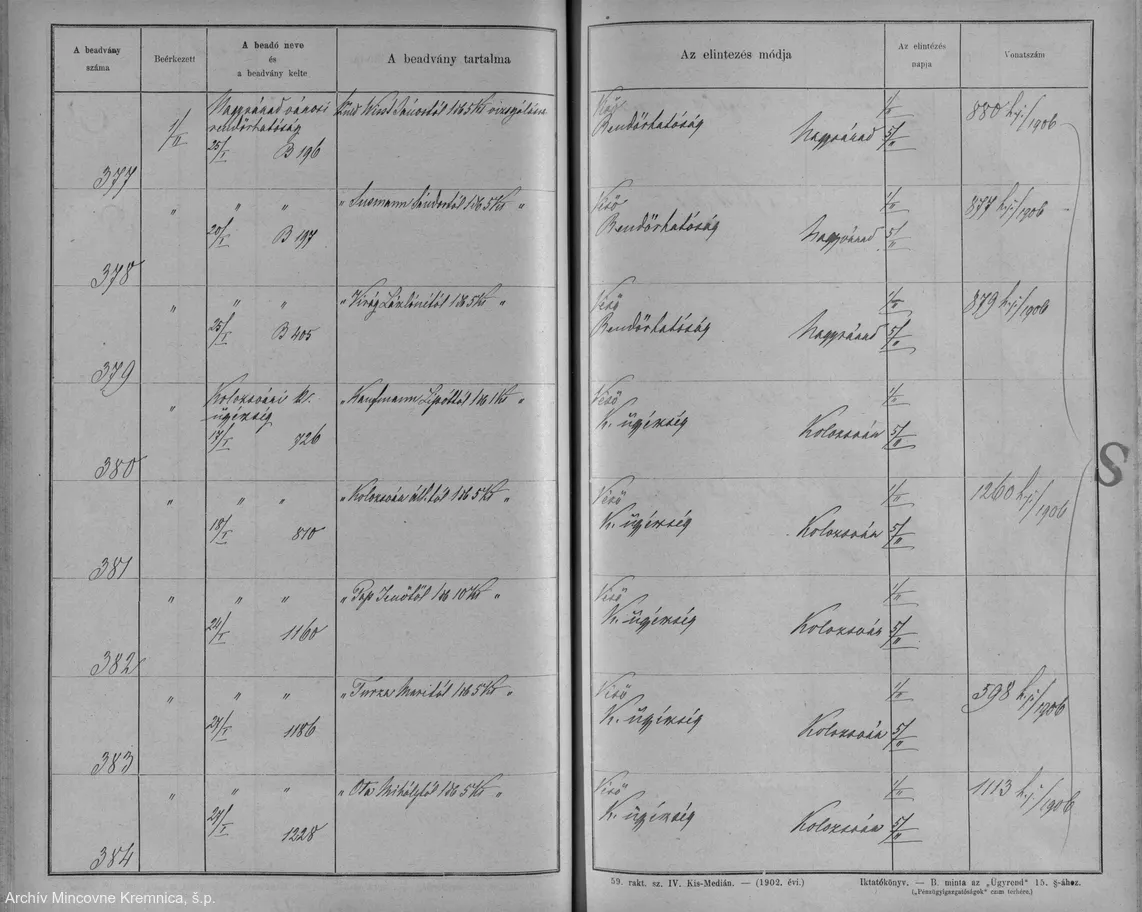 A beadvány száma
Beérkezett
A beadó neve és a beadvány kelte
A beadvány tartalma
Az elintezés módja
Az elintézés napja
Vonatszám
377
1/II
Nagyvárad városi
rendőrhatóság
25/I B 196
János­tól 1 db 5 K vizsgálása
Rendőrhatóság Nagyvárad
1/II
5/II
880 h.j./1906
378
" " "
20/I B 197
" Sándortól 1 db 5 K "
Véső
Rendőrhatóság Nagyvárad
1/II
5/II
877 h.j./1906
379
" " "
25/I B 405
" Virág 1 db 5 K "
Véső
Rendőrhatóság Nagyvárad
1/II
5/II
879 h.j./1906
380
"
Kolozsvári kir.
ügyészség
17/I 726
" Kaufmann Lipóttól 1 db 1 K "
Véső
K. ügyészség Kolozsvár
1/II
5/II
381
" " "
18/I 810
" Kolozsvár 1 db 5 K "
Véső
K. ügyészség Kolozsvár
1/II
5/II
1260 h.j./1906
382
" " "
24/I 1160
" Pap Jenőtől 1 db 10 K "
Véső
K. ügyészség Kolozsvár
1/II
5/II
383
" " "
27/I 1186
" Turza Maritól 1 db 5 K "
Véső
K. ügyészség Kolozsvár
1/II
5/II
598 h.j./1906
384
" " "
29/I 1228
" Mihálytól 1 db 5 K "
Véső
K. ügyészség Kolozsvár
1/II
5/II
1113 h.j./1906
S
59. rakt. sz. IV. Kis-Medián. — (1902. évi.)
Iktatókönyv. — B. minta az „Ügyrend" 15. §-ához.
(„Pénzügyigazgatóságok" czım terhére.)
Archív Mincovne Kremnica, š.p.